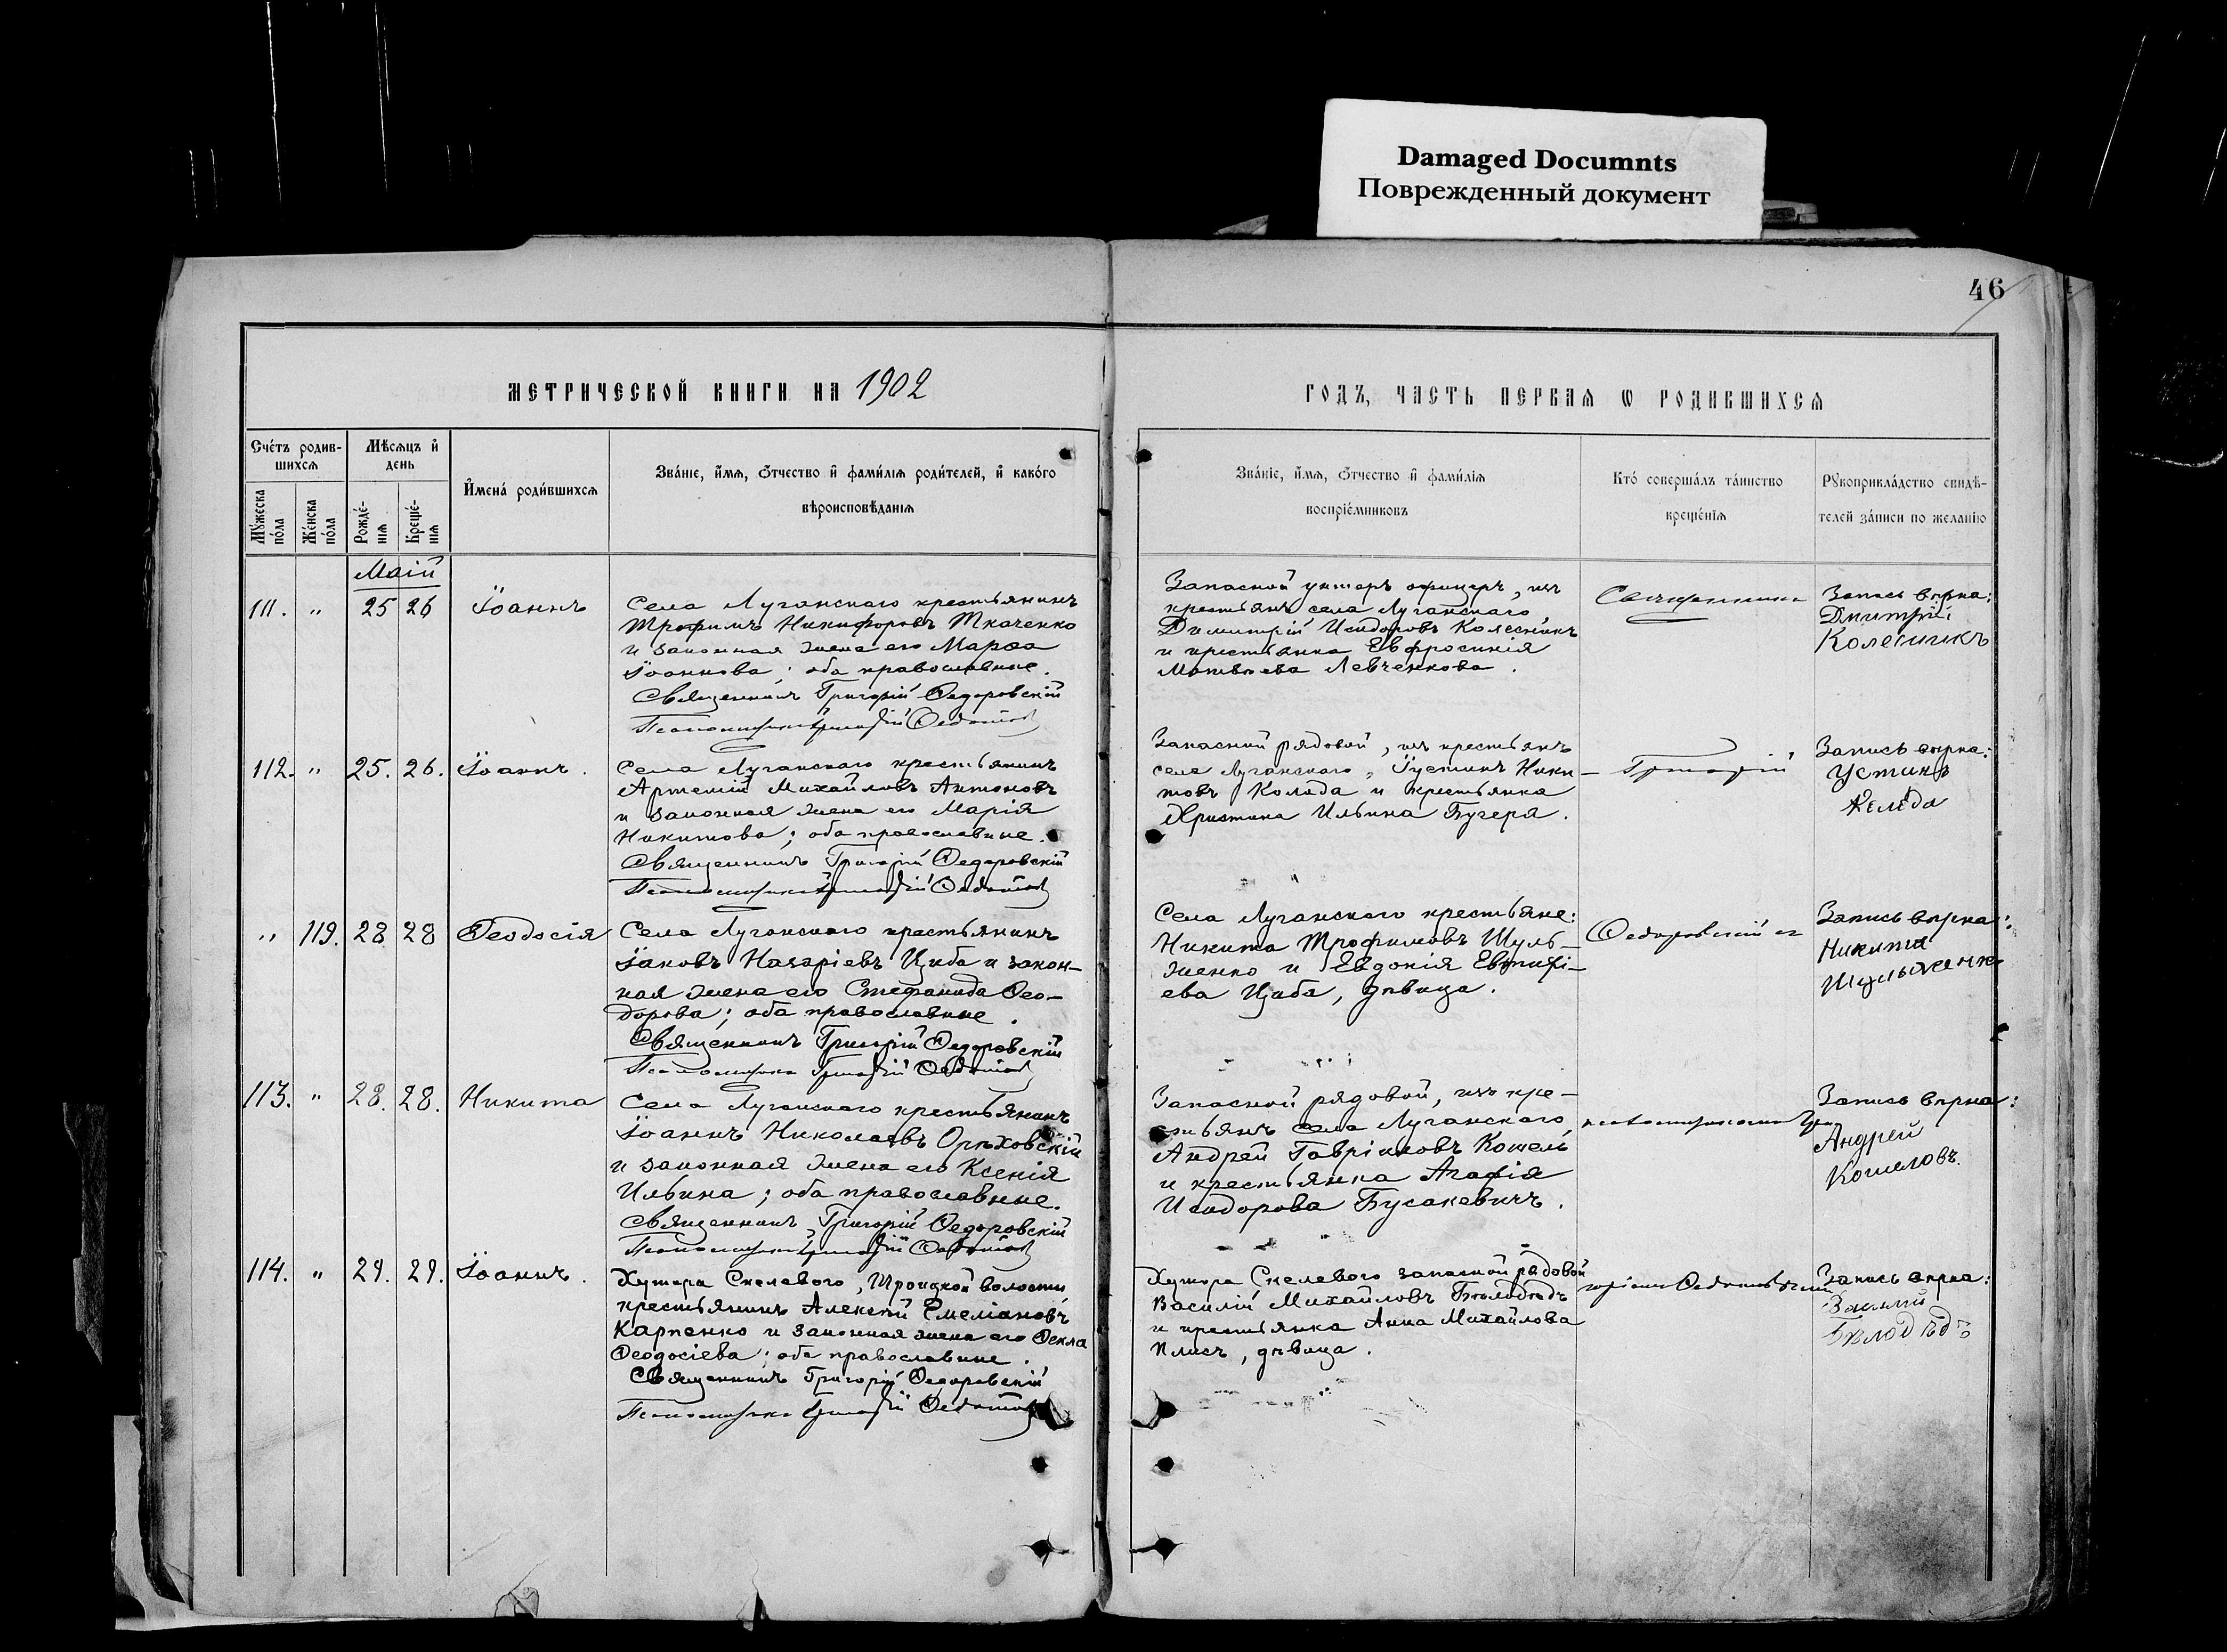 Damaged Documnts
Поврежденный документ
46
МЕТРИЧЕСКОЙ КНИГИ НА 1902
ГОДЪ, ЧАСТЬ ПЕРВАЯ Ѡ РОДИВШИХСЯ
Счётъ родив-
шихся
Мѣсяцъ и
день
Мужеска
пола
Женска
пола
Рожде-
нія
Креще-
нія
Имена родившихся
Званіе, имя, отчество и фамилія родителей, и какого
вѣроисповѣданія
Званіе, имя, отчество и фамилія
воспріемниковъ
Кто совершалъ таинство
крещенія
Рукоприкладство свидѣ-
телей записи по желанію
Маій
111. " 25 26 Іоаннъ
Села Луганскаго крестьянинъ
Трофимъ Никифоровъ Ткаченко
и законная жена его Марѳа
Іоаннова; оба православные.
Священникъ Григорій Ѳедоровскій
Псаломщикъ Григорій
Запасной унтеръ офицеръ, изъ
крестьянъ села Луганскаго
Димитрій Исидоровъ Колесникъ
и крестьянка Евфросинія
Матвѣева Левченкова.
Священникъ
Запись вѣрна:
Дмитрій
Колесникъ
112. " 25. 26. Іоаннъ.
Села Луганскаго крестьянинъ
Артемій Михайловъ Антоновъ
и законная жена его Марія
Никитова; оба православные.
Священникъ Григорій Ѳедоровскій
Псаломщикъ Григорій
Запасной рядовой, изъ крестьянъ
села Луганскаго, Іустинъ Ники-
товъ Коляда и крестьянка
Христина Ильина Бугеря.
Григорій
Запись вѣрна:
Устинъ
" 119. 28 28 Ѳеодосія
Села Луганскаго крестьянинъ
Іаковъ Назаріевъ Цыба и закон-
ная жена его Стефанида Ѳео-
дорова; оба православные.
Священникъ Григорій Ѳедоровскій
Псаломщикъ Григорій
Села Луганскаго крестьяне:
Никита Трофимовъ Шуль-
женко и Евдокія Евтихі-
ева Цыба, дѣвица.
Ѳедоровскій съ
Запись вѣрна:
Никита
Шульженко
113. " 28. 28. Никита
Села Луганскаго крестьянинъ
Іоаннъ Николаевъ Орѣховскій
и законная жена его Ксенія
Ильина; оба православные.
Священникъ Григорій Ѳедоровскій
Псаломщикъ Григорій
Запасной рядовой, изъ кре-
стьянъ села Луганскаго,
Андрей Гавріиловъ Кошель
и крестьянка Агафія
Исидорова Бусакевичъ.
псаломщикомъ Гри-
Запись вѣрна:
Андрей
Кошеловъ.
114. " 29. 29. Іоаннъ.
Хутора Скелевого, Троицкой волости
крестьянинъ Алексѣй Емеліановъ
Карпенко и законная жена его Ѳекла
Ѳеодосіева; оба православные.
Священникъ Григорій Ѳедоровскій
Псаломщикъ Григорій
Хутора Скелевого запасной рядовой
Василій Михайловъ Бѣлодѣдъ
и крестьянка Анна Михайлова
Плисъ, дѣвица.
горіемъ
Запись вѣрна:
Василій
Бѣлодѣдъ